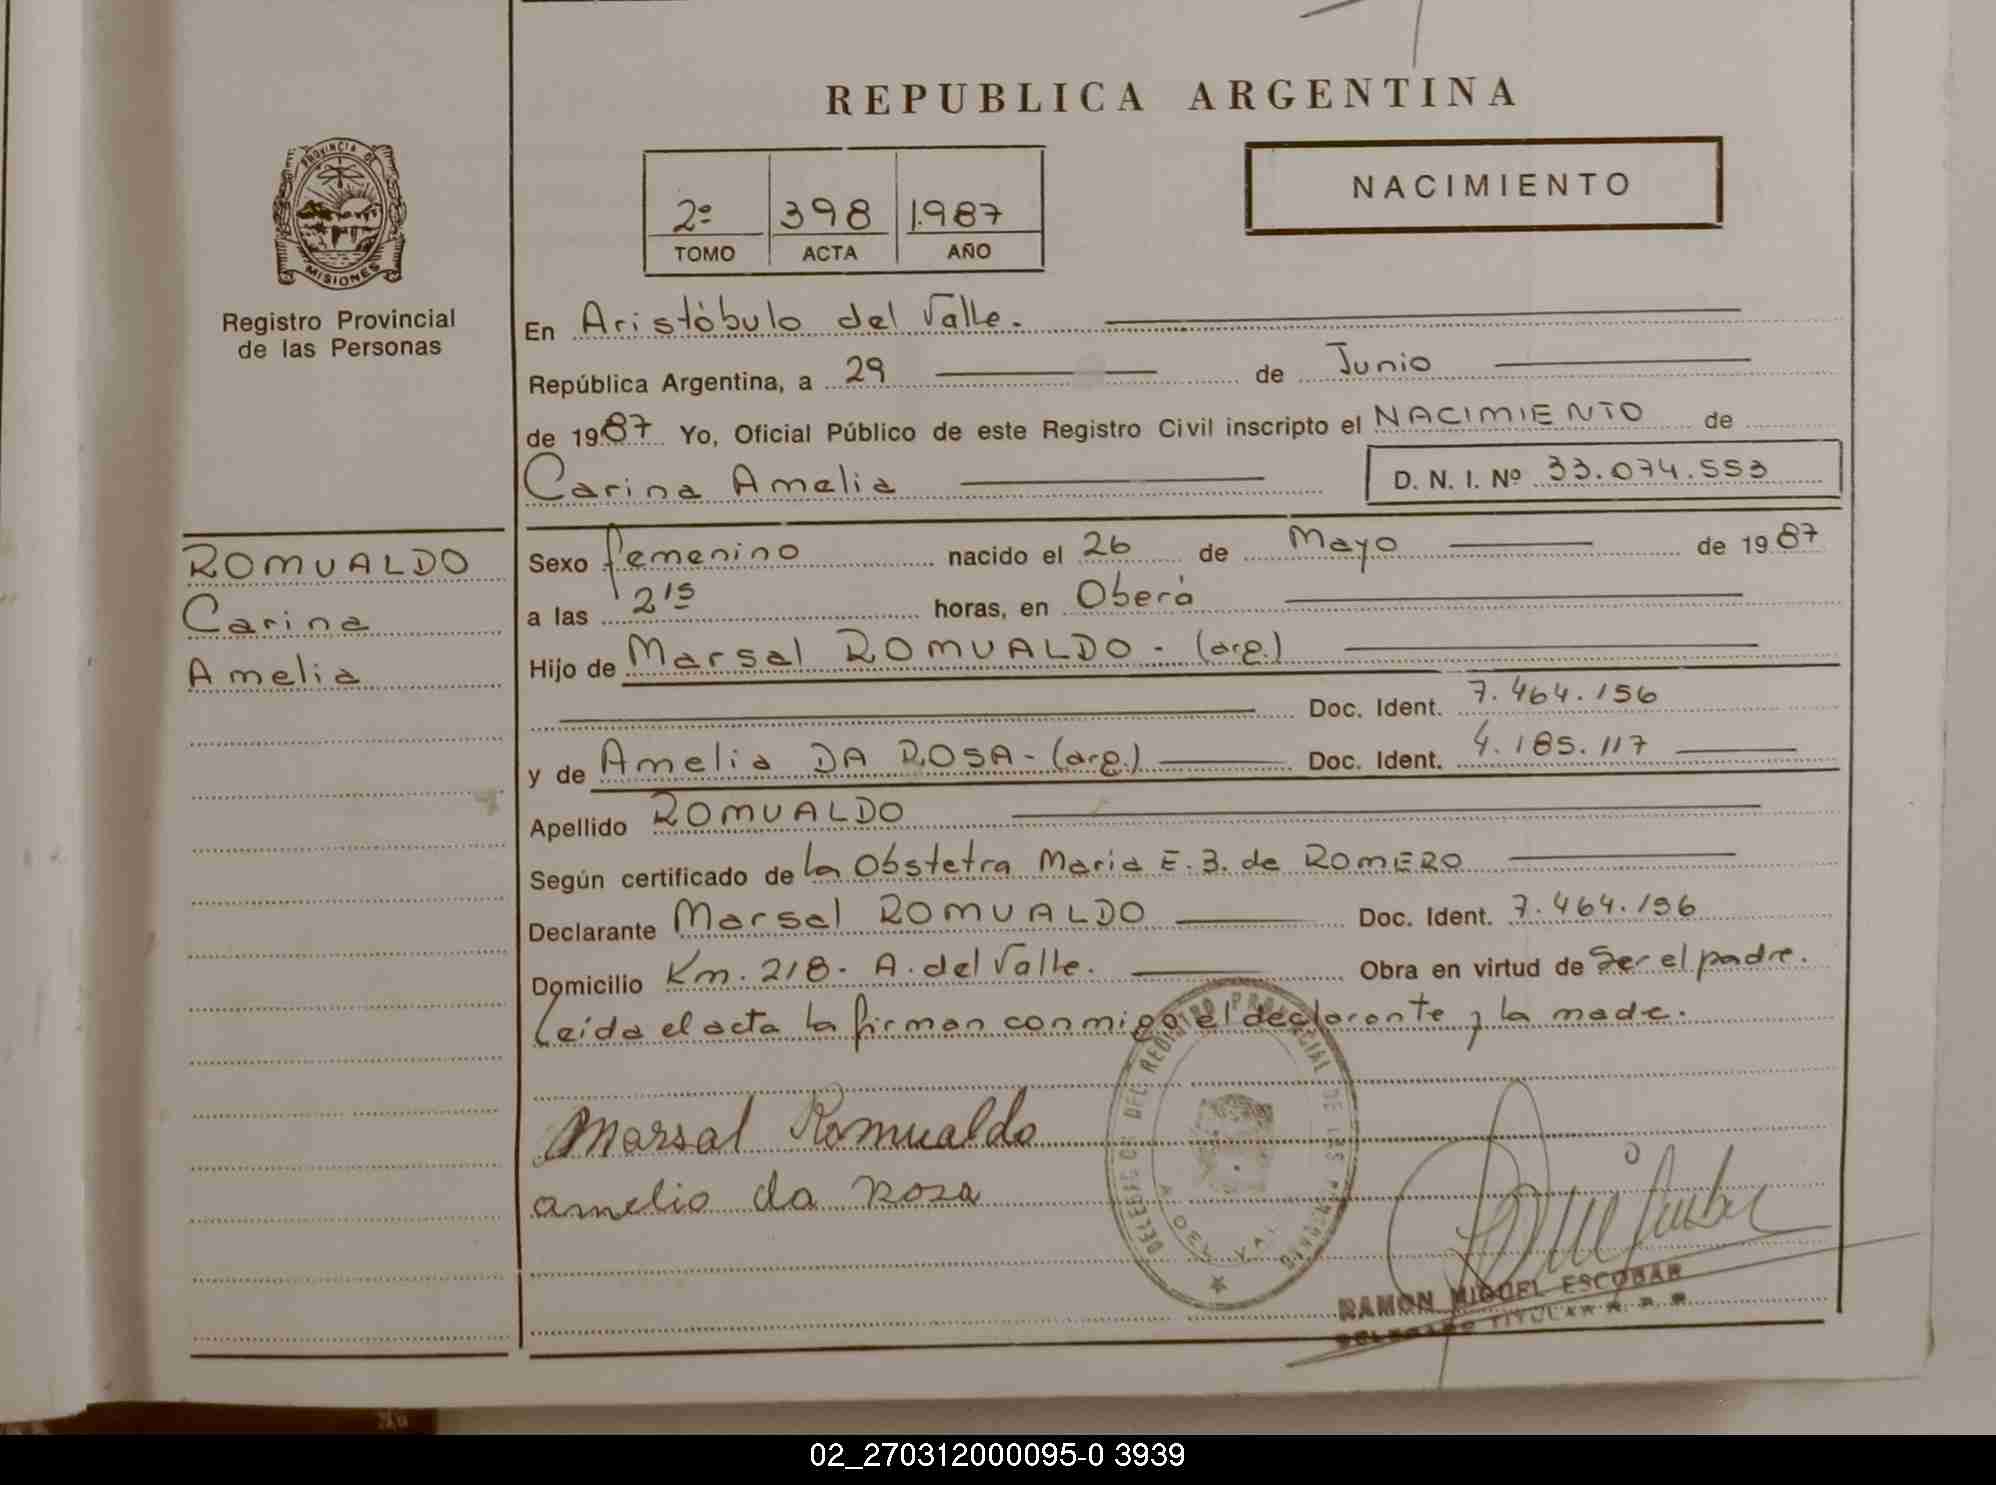 REPUBLICA ARGENTINA
NACIMIENTO
2º 398 1.987
TOMO ACTA AÑO
PROVINCIA DE
MISIONES
Registro Provincial
de las Personas
En Aristóbulo del Valle.
República Argentina, a 29 de Junio
de 1987 Yo, Oficial Público de este Registro Civil inscripto el NACIMIENTO de
Carina Amelia D. N. I. Nº 33.074.553
ROMUALDO
Carina
Amelia
Sexo femenino nacido el 26 de Mayo de 1987
a las 2 15 horas, en Oberá
Hijo de Marsal ROMUALDO - (arg.)
Doc. Ident. 7.464.156
y de Amelia DA ROSA - (arg.) Doc. Ident. 4.185.117
Apellido ROMUALDO
Según certificado de la Obstetra Maria E. B. de ROMERO
Declarante Marsal ROMUALDO Doc. Ident. 7.464.156
Domicilio Km. 218. A. del Valle. Obra en virtud de ser el padre.
Leída el acta la firman conmigo el declarante y la madre.
Marsal Romualdo
amelia da Rosa
DEL REGISTRO PROVINCIAL DE LAS PERSONAS
RAMON MIGUEL ESCOBAR
DELEGADO TITULAR R. P. P.
02_270312000095-0 3939